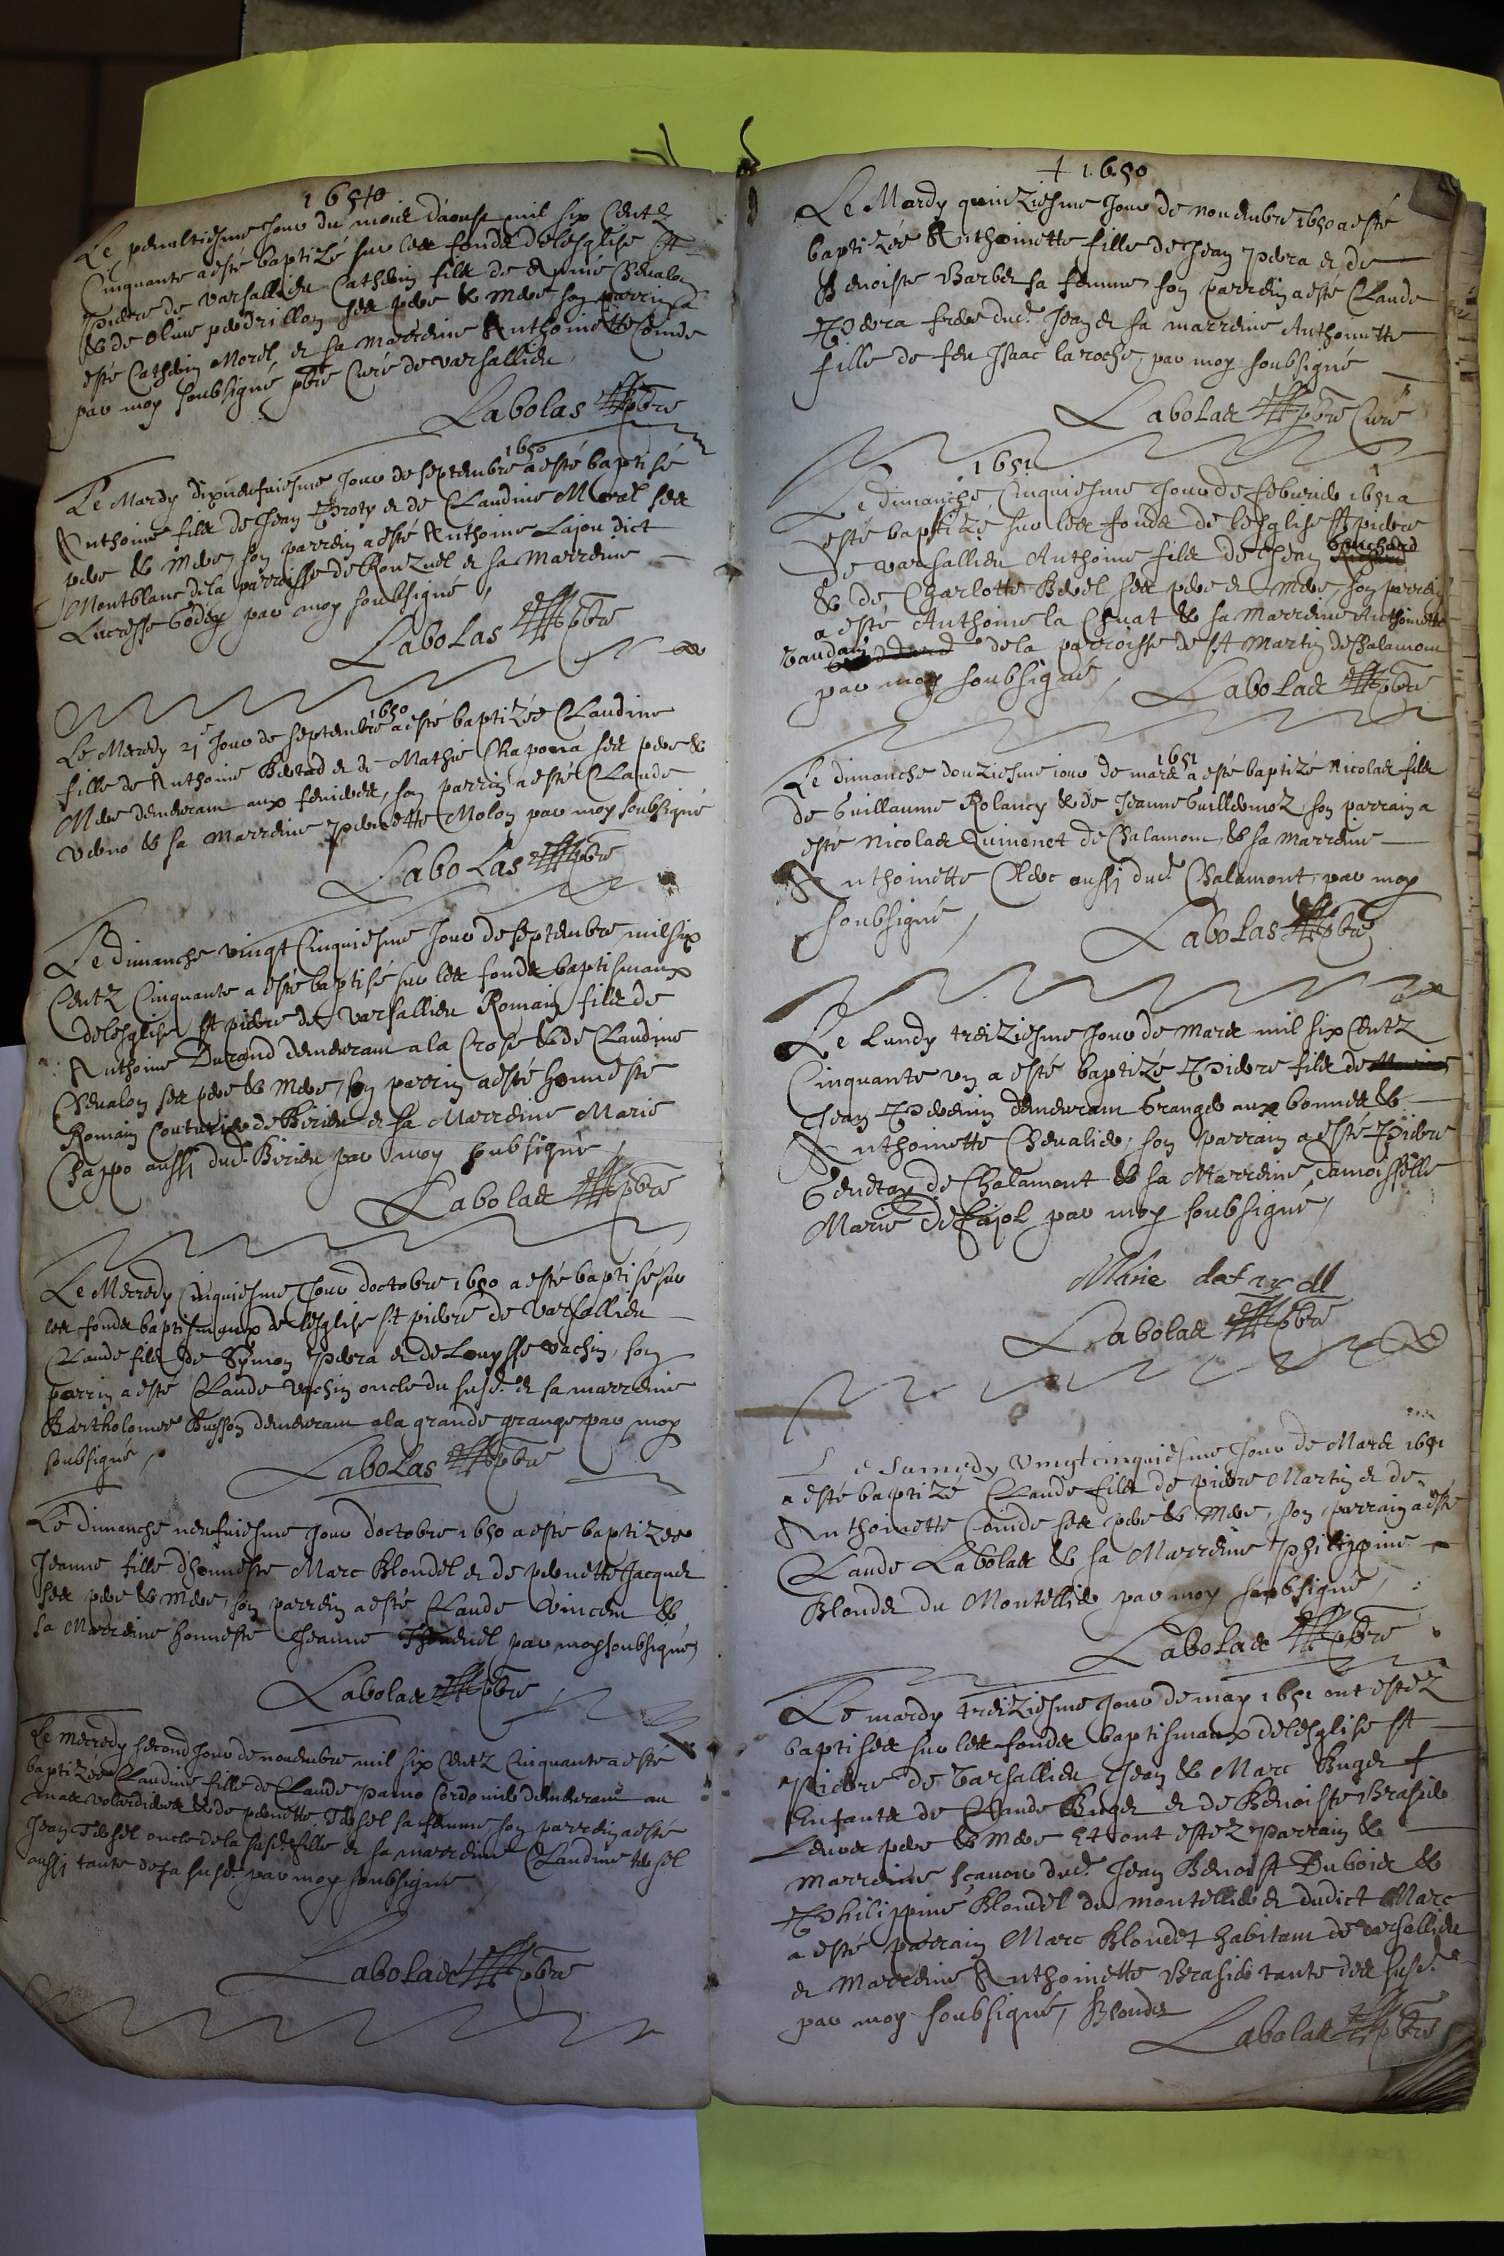 1650
Le penultiesme Jour du mois daoust mil six Centz
Cinquante a esté baptizé sur les fondz de lesglise St
Pierre de Varsallieu Catherin filz de Aymé Chevalon
& de Olive perdrillon ses pere & mere son parrin a
esté Catherin Morel et sa marreine Anthoinette Comde
par moy soubsigné pbre Curé de varsallieu
Labolas pbre
1650
Le Mardy dixneufviesme Jour de septembre a esté baptisé
Anthoine filz de Jean Proty et de Claudine Moral ses
pere & mere, son parrein a esté Anthoine Lajou dict
Montblanc de la parroisse de Ronzuel et sa Marreine
Lucresse par moy soubsigné,
Labolas pbre
1650
Le Mecredy 21e Jour de septembre a esté baptizée Claudine
fille de Anthoine Bertad et de Mathie Chapona ses pere &
Mere demeurant aux , son parrin a esté Claude
& sa Marreine Pernette Molon par moy soubsigné
Labolas pbre
Le dimanche vingt Cinquiesme Jour de septembre mil six
Centz Cinquante a esté baptisé sur les fondz baptismaux
de lesglise St pierre de Varsallieu Romain filz de
Anthoine Durand demeurant a la Crose & de Claudine
Chevalon ses pere & mere, son parrin a esté honneste
Romain Couturier de Birieu et sa Marreine Marie
Chappo aussi dud. Birieu par moy soubsigné,
Labolas pbre
Le Mecredy Cinquiesme Jour doctobre 1650 a esté baptisé sur
les fondz baptismaux de lesglise St pierre de Varsallieu
Claude filz de Symon Pera et de Louysse Vachin, son
parrin a esté Claude Vachin oncle du susd. et sa marreine
Bartholomee Buisson demeurant a la grande grange par moy
soubsigné,
Labolas pbre
Le dimanche neufviesme Jour doctobre 1650 a esté baptizee
Jeanne fille dhonneste Marc Blondel et de pernette Jacquet
ses pere & Mere, son parrein a esté Claude Vincent &
sa Marreine honneste Jeanne par moy soubsigné
Labolas pbre
Le Mecredy second Jour de novembre mil six Centz Cinquante a este
baptizée Claudine fille de Claude Parno Cordonnier demeurant au
mas & de pernette Tessel sa femme, son parrein a este
Jean Tessel oncle de la susd. fille et sa marreine Claudine tessel
aussi tante de sa susd. par moy soubsigné
Labolas pbre
+ 1650
Le Mardy quinziesme Jour de novembre 1650 a esté
baptizée Anthoinette fille de Jean Pera et de
Benoiste Barbet sa femme, son parrein a esté Claude
Pera frere dud. Jean et sa marreine Anthoinette
fille de feu Isaac la roche, par moy soubsigné
Labolas pbre Curé
1651
Le dimanche Cinquiesme Jour de febvrier 1651 a
esté baptizé sur les fondz de lesglise St pierre
de varsallieu Anthoine filz de Jean bouchard
& de Charlotte Berel ses pere et mere, son parrein
a esté Anthoine la Chuat & sa Marreine Anthoinette
baudain de la parroisse de St Martin de Chalamont
par moy soubsigné
Labolas pbre
1651
Le dimanche douziesme iour de mars a esté baptizé Nicolas filz
de Guillaume Rolancy & de Jeanne Guillermoz, son parrain a
esté Nicolas Quinenet de Chalamont, & sa Marreine
Anthoinette Clerc aussi dud. Chalamont, par moy
soubsigné,
Labolas pbre
Le Lundy treiziesme Jour de Mars mil six Centz
Cinquante un a esté baptizé Pierre filz de
Jean Pevenin demeurant Granger aux bonnes &
Anthoinette Chevalier, son parrain a esté Pierre
Genetay de Chalamont & sa Marreine, damoisselle
Marie de fajol par moy soubsigné,
Marie
Labolas pbre
Le Samedy Vingtcinquiesme Jour de Mars 1651
a esté baptizé Claude filz de pierre Martin et de
Anthoinette Comde ses pere & Mere, son parrain a esté
Claude Labolas & sa Marreine Philippine
Blondel du Montellier par moy soubsigné,
Labolas pbre
Le mardy treiziesme Jour de may 1651 ont estez
baptisés sur les fondz baptismaux de lesglise St
Pierre de Varsallieu Jean & Marc Buget
Enfants de Claude Buget et de Benoiste Brasier
Leurs pere & Mere Et ont estez Parrain &
Marreine sçavoir dud. Jean Benoist Dubois &
Philippine Blondel du montellier et dudict Marc
a esté parrain Marc Blondel habitant de varsallieu
et Marreine Anthoinette Brasier tante des susd.
par moy soubsigné, Blondel
Labolas pbre